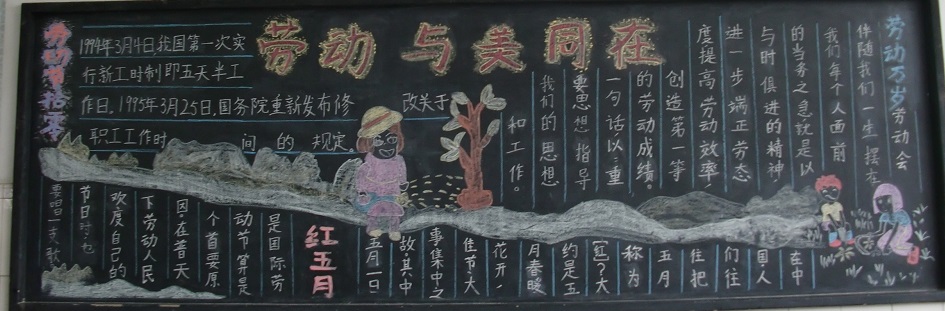 劳动 与美同在
劳动节拾零
1994年3月4日我国第一次实
行新工时制即五天半工
作日。1995年3月25日,国务院重新发布修 改关于
职工工作时 间 的 规定
劳动万岁劳动会
伴随我们一生摆在
我们每个人面前
的当务之急就是以
与时俱进的精神
进一步端正劳态
度提高劳动效率,
创造第一等
的劳动成绩。
一句话以:重
要思想指导
我们的思想
和工作。
红五月
在中
国人
们往
往把
五月
称为
?大
约是五
月春暖
花开,
佳节大
事集中之
故,其中
五月一日
是国际劳
动节算是
个首要原
因。在普天
下劳动人民
欢度自己的
节日时也
要唱一支歌